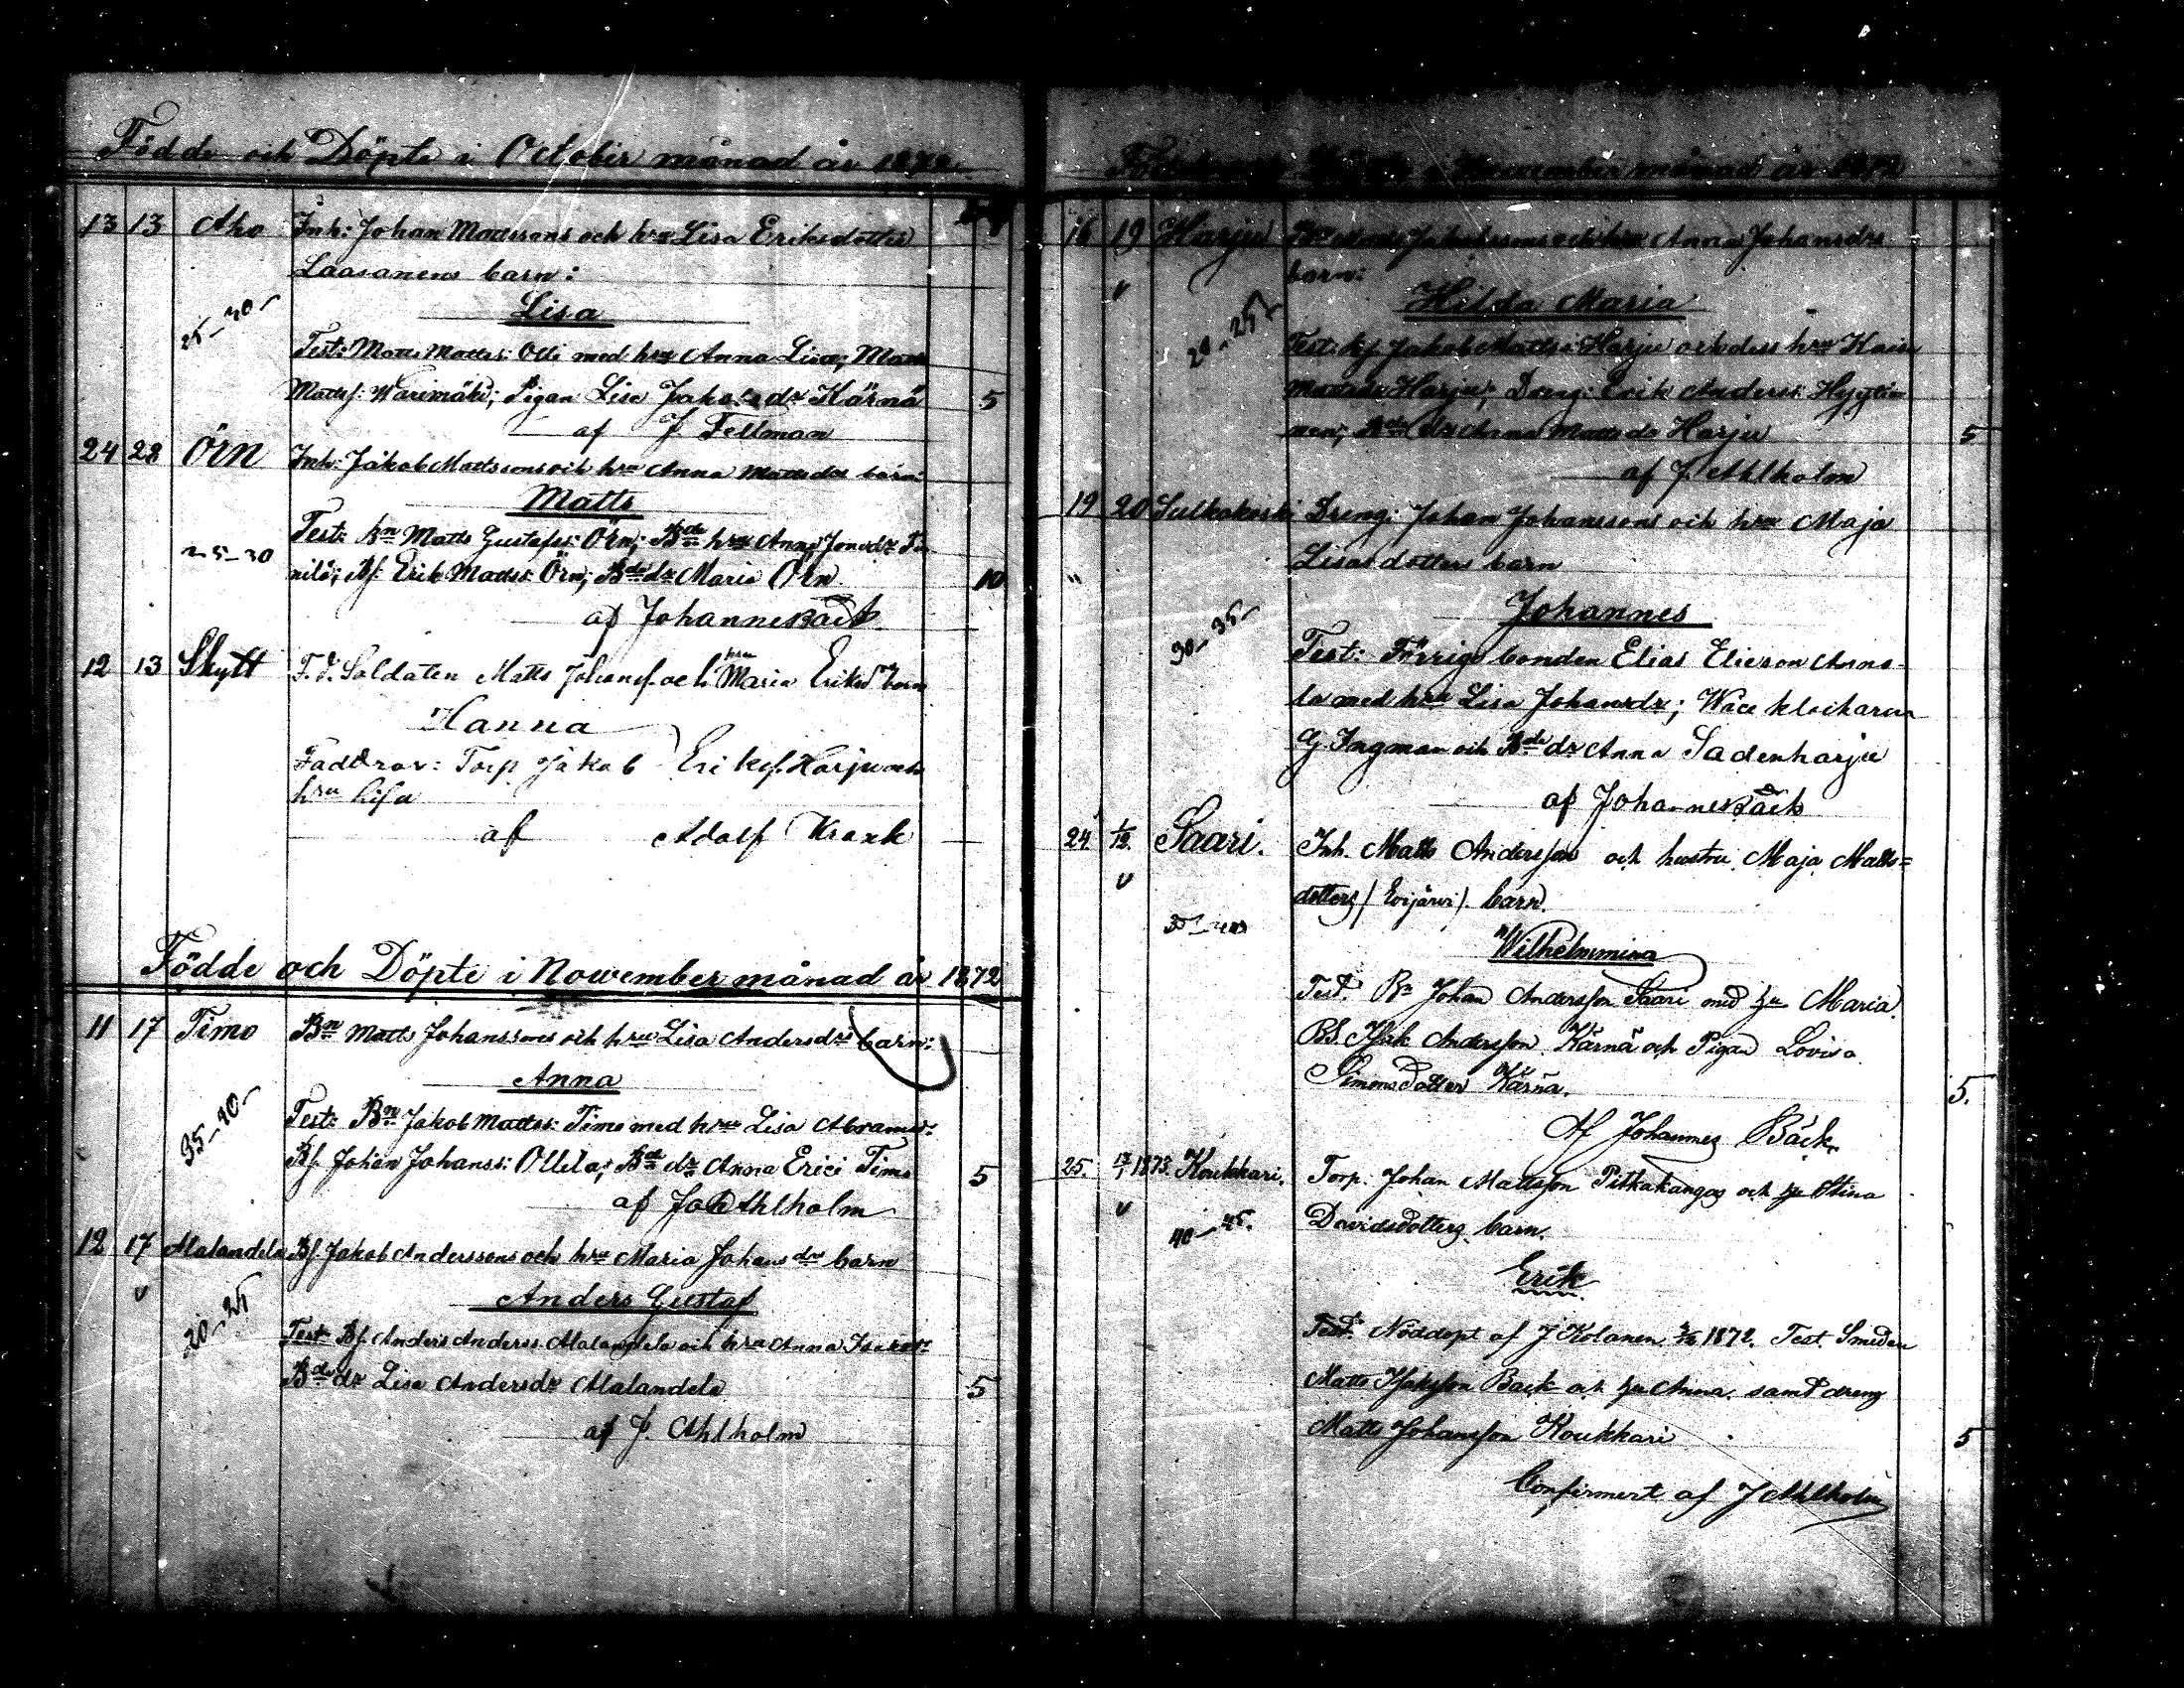 Födde och Döpte i October månad år 1872
13 13 Aho Inh: Johan Mattssons och hru Lisa Eriksdotter
Laasanens barn:
Lisa
25–30
Test: Matts Matts: Olli med hru Anna Lisa; Matts
Mattss: Warimäki; Pigan Lisa Jakobsdr Kärnä 5
af J. Fellman
24 28 Örn Inh: Jakob Mattssons och hru Anna Mattsdrs barn:
Matts
Test: Bn Matts Gustafss: Örn; Bde hru Anna Jonsdr
25–30
nilä; Bs. Erik Matts: Örn; Bde dr Maria Örn 10
af Johannes Bäck
12 13 Skytt F.d. Soldaten Matts Johanss. och hru Maria Eriksd barn
Hanna
Faddrar: Torp Jakob Erikss. Harju och
hru Lisa
af Adolf Krank
Födde och Döpte i November månad år 1872
11 17 Timo Bn Matts Johanssons och hru Lisa Andersdrs barn:
Anna
35–40
Test: Bn Jakob Matts: Timo med hru Lisa Abramsd:
Bs. Johan Johanss: Ollila; Bde dr Anna Erici Timo 5
af Joh Ahlholm
12 17 Malandela Bs. Jakob Anderssons och hru Maria Johansdrs barn
v
Anders Gustaf
20–25
Test: Bs. Anders Anderss. Malandela och hru Anna Isaksdr
Bde dr Lisa Andersdr Malandela 5
af J. Ahlholm
Födde och Döpte i November månad år 1872
16 19 Harju Bn Matts Jakobssons och hru Anna Johansdrs
barn:
v
Hilda Maria
20–25
Test: Bs. Jakob Matts: Harju och dess hru Kaisa
Mattsdr Harju; Dreng: Erik Anderss: Hyytinen
nen; Bde dr Anna Mattsdr Harju 5
af J. Ahlholm
19 20 Sulkakoski Dreng: Johan Johanssons och hru Maja
Lisasdotters barn
"
Johannes
30–35
Test: Förrige bonden Elias Elieson Anna-
la med hru Lisa Johansdr; Wice klockaren
G. Ingman och Bde dr Anna Sadenharju
af Johannes Bäck
24 1/12 Saari. Inh. Matts Andersson och hustru Maja Matts=
v
dotters / Evijärvi / barn.
35–40
Wilhelmmina
Test. Bn Johan Andersson Saari med hu Maria.
BS. Isak Andersson Kärnä och Pigan Lovisa
Simonsdotter Kärnä. 5.
Af Johannes Bäck.
25. 1873. Koukkari. Torp. Johan Mattsson Pitkäkangas och hu Stina
v
40–45. Davidsdotters barn.
Erik
Test. Nöddöpt af J Kolanen 1872. Test. Smeden
Matts Isaksson Back och hu Anna. samt dreng
Matts Johansson Koukkari 5
Confirmert af J Ahlholm